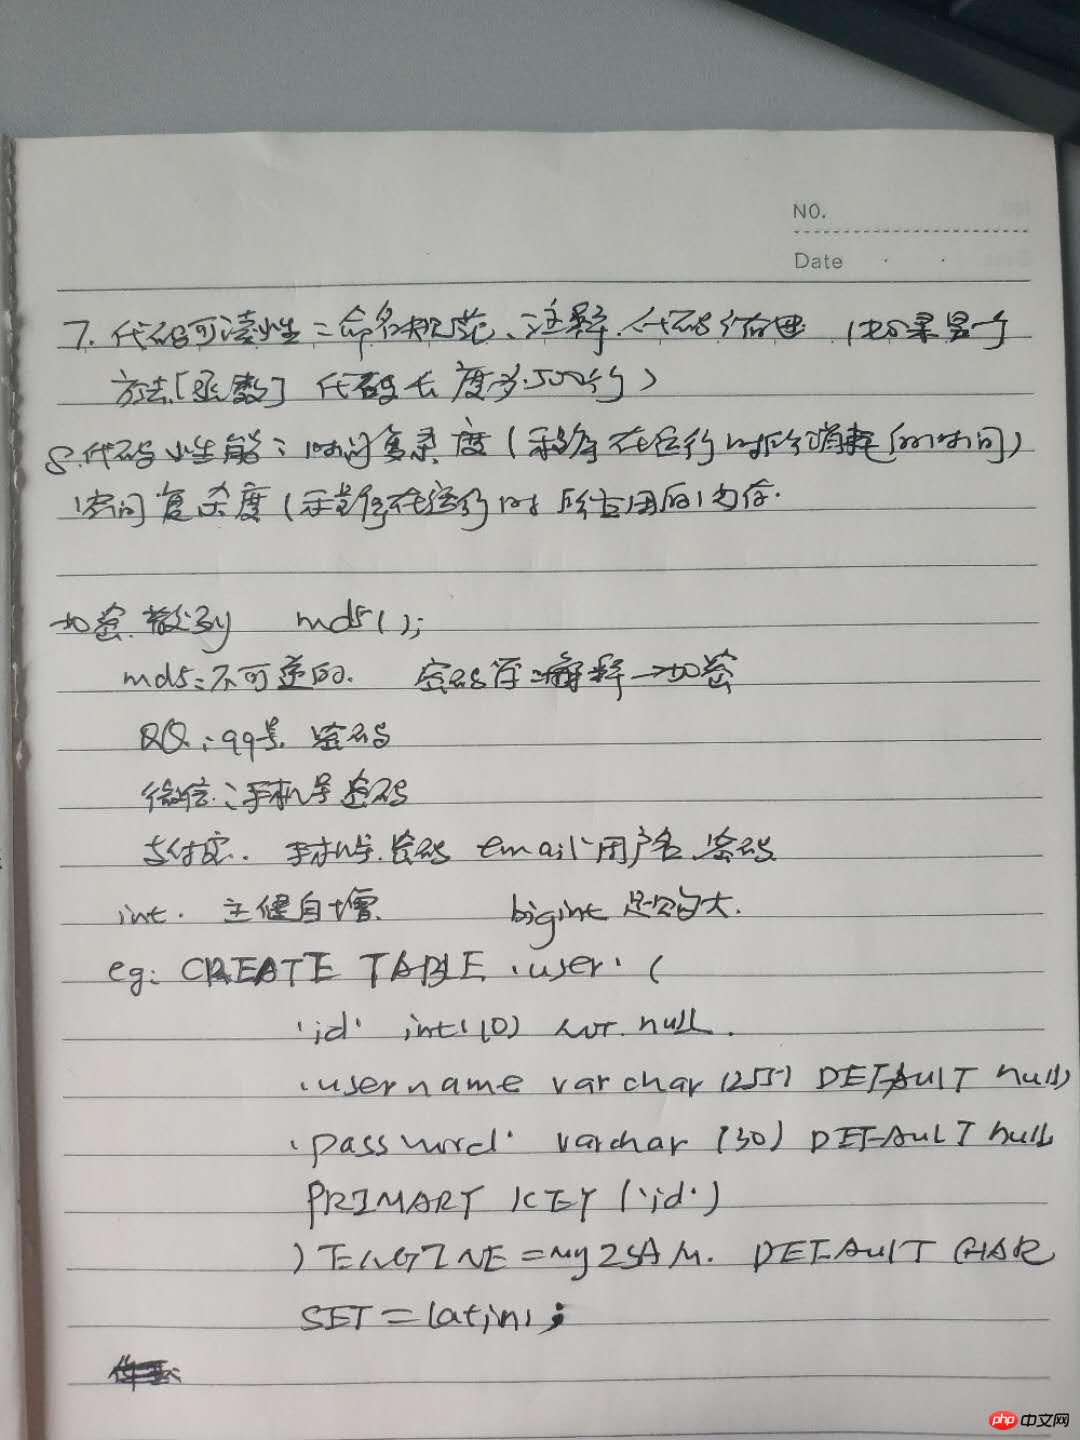 NO.
Date
7. 代码可读性：命名规范、注释、代码 (如果是一个
方法[函数] 代码长度为500行)
8.代码性能：时间复杂度(程序在运行时所消耗的时间)
空间复杂度(程序在运行时所占用的内存.
加密散列 md5();
md5:不可逆的. 密码 :解释→加密
QQ:qq号.密码
微信:手机号密码
支付宝. 手机号.密码 email 用户名.密码
int. 主健自增. bigint 足够大.
eg: CREATE TABLE `user` (
`id` int(10) not null.
`username varchar (255) DEFAULT null,
`password` varchar (30) DEFAULT null
PRIMARY KEY (`id`)
) ENGINE=MyISAM. DEFAULT CHAR
SET=latin1;
php 中文网